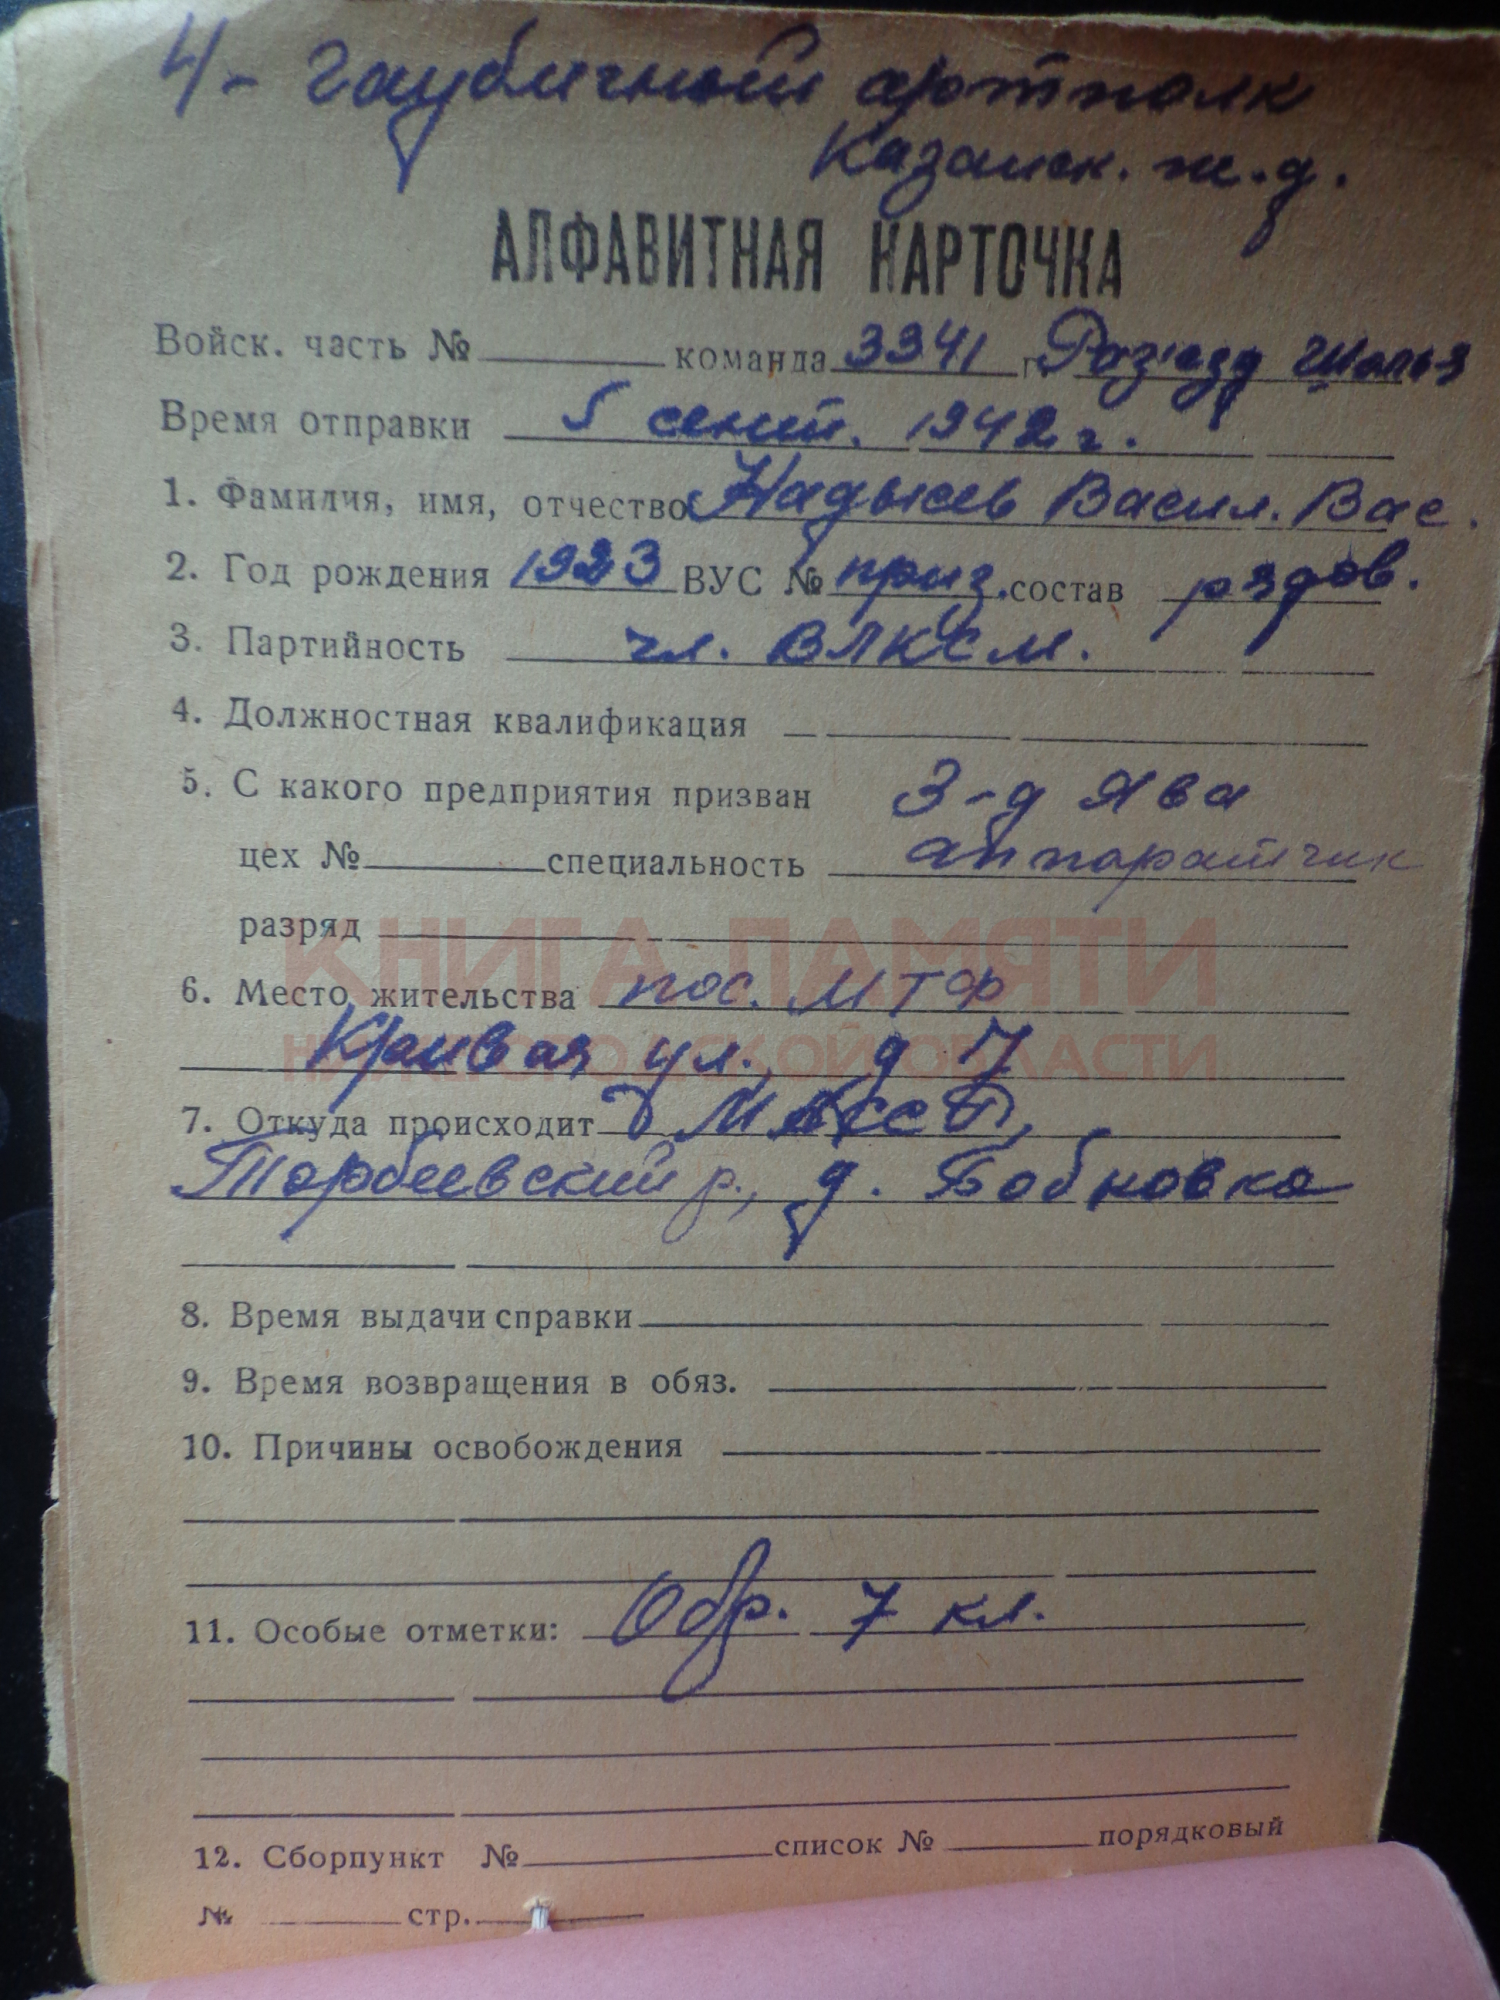 4 - гаубичный артполк
Казанск. ж.д.
АЛФАВИТНАЯ КАРТОЧКА
Войск. часть № команда 3341 г. Раз'езд
Время отправки 5 сент. 1942 г.
1. Фамилия, имя, отчество Надысев Васил. Вас.
2. Год рождения 1923 ВУС № приз. состав рядов.
3. Партийность чл. ВЛКСМ.
4. Должностная квалификация
5. С какого предприятия призван З-д Ява
цех № специальность аппаратчик
разряд
КНИГА ПАМЯТИ
6. Место жительства пос. МТФ
НИЖЕГОРОДСКОЙ ОБЛАСТИ
Кривая ул., д 17
7. Откуда происходит МАССР,
Торбеевский р., д. Бобновка
8. Время выдачи справки
9. Время возвращения в обяз.
10. Причины освобождения
11. Особые отметки: Обр. 7 кл.
12. Сборпункт № список № порядковый
№ стр.